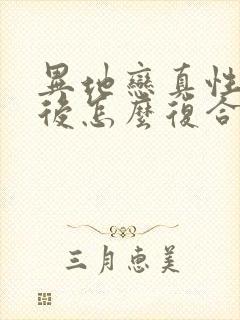 異地戀真性
後怎麼復合
三月惠美